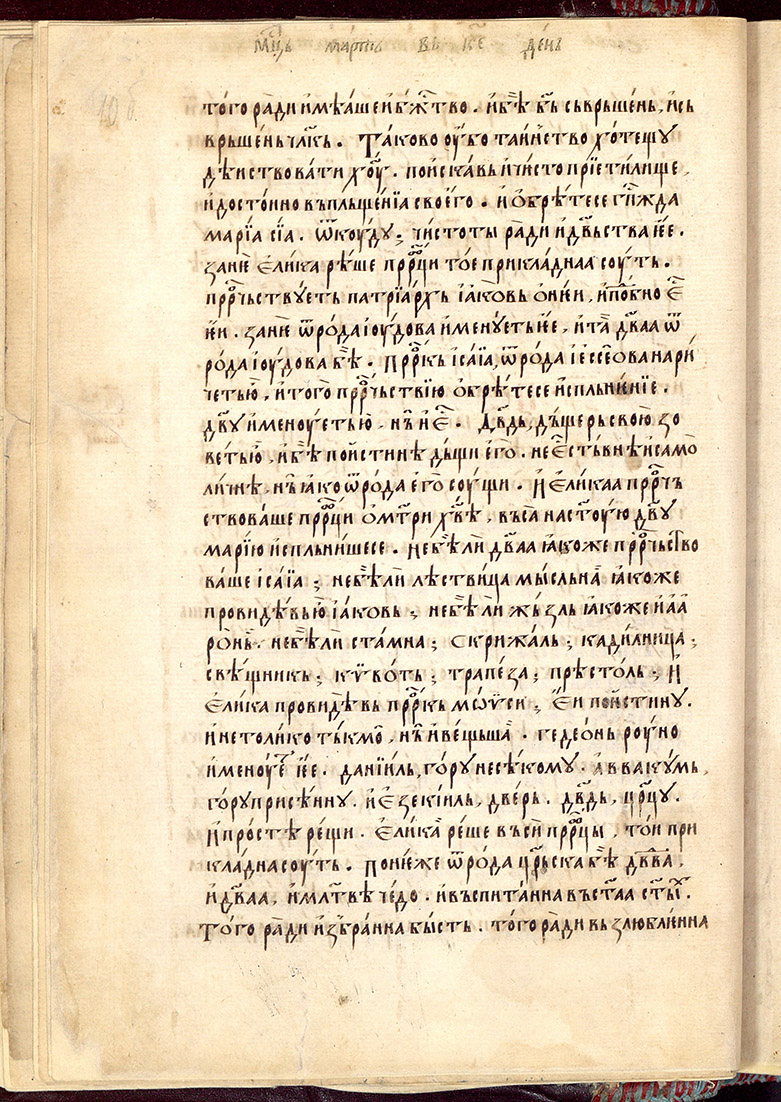 Мц҃ъ мартъ въ к҃е день
10 б.
то́го ра́ди и҆мѣ́аше и҆ бж҃тво . и҆ бѣ̀ бъ҃ съврьше́нь , и҆ сь
врьше́нь чл҃къ . Та́ково оу҆́бо таи́нство хоте́щу
дѣ́иствовати хо҃у . пои҆ска́вь и҆ чи́сто прїе́тилище ,
и҆ досто́нно въплъще́нїа свое́го . и҆ ѻ҆брѣ́тесе гп҃жда
марі́а сїа . ѿкоу́ду ; чи́стоты ра́ди и҆ дв҃ьства і҆ее .
зане́ е҆ли́ка рѣ́ше прⷪ҇рци то́е прикла́днаа соу́ть .
прⷪ҇рчьству́еть патрїа́рхъ і҆а́ковь ѻ҆ ні́еи , и҆ подо́бно е҆с҃
і҆еи . зане́ ѿ ро́да і҆оу́дова и҆мену́еть і҆ее , и҆ та̀ дв҃аа ѿ
ро́да і҆оу́дова бѣ̀ . прⷪ҇ркь і҆са́їа , ѿ ро́да і҆ессе́ова нари́
четь ю҆̀ , и҆ то́го прⷪ҇рчьствїю ѻ҆брѣ́тесе и҆спльне́нїе .
дв҃у и҆меноу́еть ю҆̀ , нь҆̀ и҆ е҆с҃ . Дв҃дь , дъ́щерь свою̀ зо
веть ю҆̀ , и҆ бѣ̀ пои́стинѣ дъ́щи е҆го̀ . не е҆сть́внѣ и҆ само
ли́чнѣ , нь҆̀ ꙗ҆ко ѿ ро́да е҆го̀ соу́щи . И҆ е҆ли́каа прⷪ҇рчь
ствова́ше прⷪ҇рци ѻ҆ мт҃ри хв҃ѣ , въса̀ на ст҃оую дв҃у
марі́ю и҆спльни́шесе . не бѣ́ ли дв҃аа ꙗ҆коже прⷪ҇рчьство
ва́ше і҆са́їа ; не бѣ́ ли лѣ́ствица мы́сльнаꙗ ꙗ҆́коже
провидѣ́вь ю҆̀ і҆а́ковь ; не бѣ́ ли жь́зль ꙗ҆коже и҆ аа
ро́нь . не бѣ́ ли ста́мна ; скрижа́ль ; кади́лница ;
свѣ́щникь ; кїво́ть ; трапе́за ; прѣсто́ль ; И҆
е҆ли́ка провидѣ́вь прⷪ҇ркъ мѡѷси ; е҆́и пои́стину .
и҆ не то́лико ты́кмо , нь҆̀ и҆ ве́щьша . геде́онь роу́но
и҆меноу́еть і҆ее . данїиль , го́ру несѣ́кому . авваку́мь ,
го́ру присѣ́нну . и҆ е҆зекі́иль , две́рь . дв҃дь , цр҃цу .
И҆ про́стѣ рещѝ . е҆ли́ка ре́ше въсѝ прⷪ҇рцы , то́и при
кла́дна соу́ть . поне́же ѿ ро́да цр҃ьска бѣ̀ дв҃ва ,
и҆ дв҃аа , и҆ мл҃твѣ че́до . и҆ въспита́нна въ ст҃аа ст҃ых .
То́го ра́ди и҆збра́нна бы́сть . то́го ра́ди вьзлю́бліенна